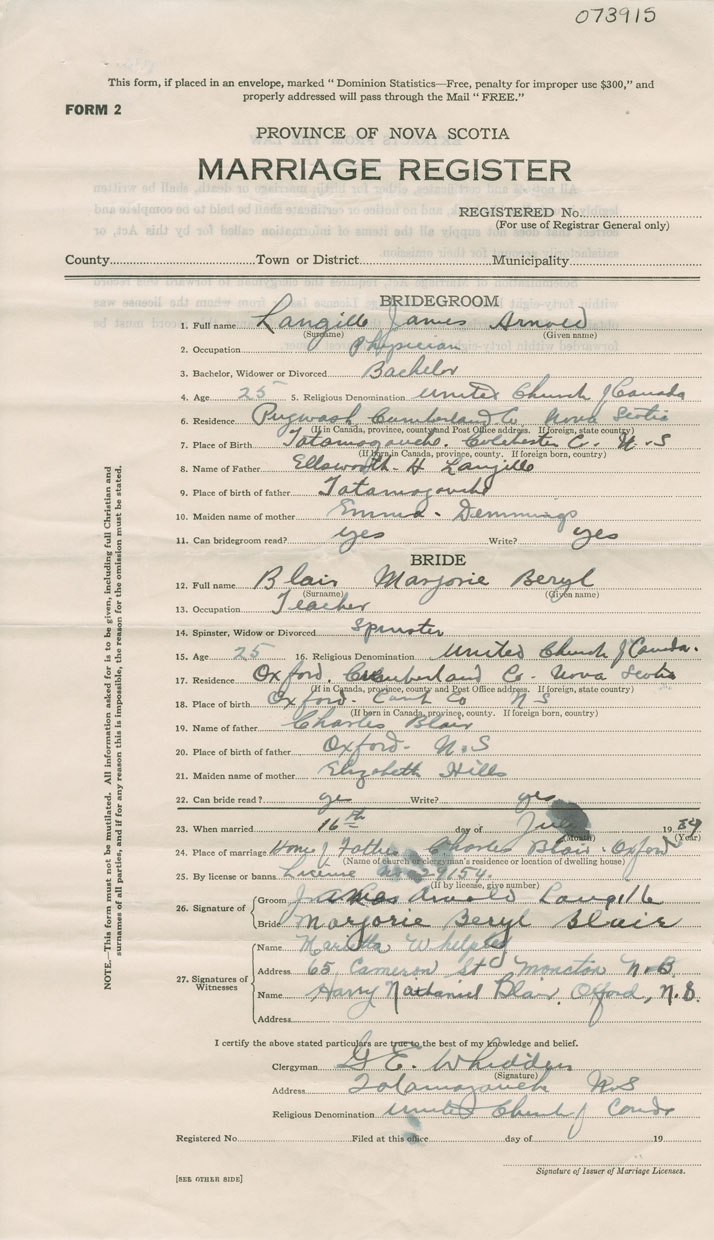 073915
This form, if placed in an envelope, marked " Dominion Statistics—Free, penalty for improper use $300," and
properly addressed will pass through the Mail " FREE."
FORM 2
PROVINCE OF NOVA SCOTIA
MARRIAGE REGISTER
REGISTERED No.
(For use of Registrar General only)
County Town or District Municipality
BRIDEGROOM
1. Full name Langille James Arnold
(Surname) (Given name)
2. Occupation Physician
3. Bachelor, Widower or Divorced Bachelor
4. Age 25 5. Religious Denomination United Church of Canada
6. Residence Pugwash Cumberland Co Nova Scotia
(If in Canada, province, county and Post Office address. If foreign, state country)
7. Place of Birth Tatamagouche. Colchester C. N.S
(If born in Canada, province, county. If foreign born, country)
8. Name of Father Ellsworth. H Langille
9. Place of birth of father Tatamagouche
10. Maiden name of mother Emma. Demmings
11. Can bridegroom read? yes Write? yes
BRIDE
12. Full name Blair Marjorie Beryl
(Surname) (Given name)
13. Occupation Teacher
14. Spinster, Widow or Divorced Spinster
15. Age 25 16. Religious Denomination United Church of Canada.
17. Residence Oxford. Cumberland Co. Nova Scotia
(If in Canada, province, county and Post Office address. If foreign, state country)
18. Place of birth Oxford. Cumb Co N S
(If born in Canada, province, county. If foreign born, country)
19. Name of father Charles Blair
20. Place of birth of father Oxford. N.S
21. Maiden name of mother Elizabeth Hills
22. Can bride read? yes Write? yes
23. When married 16th day of July 19
(Month) (Year)
24. Place of marriage Home of Father Charles Blair. Oxford
(Name of church or clergyman's residence or location of dwelling house)
25. By license or banns License 29154.
(If by license, give number)
26. Signature of Groom James Arnold Langille
Bride Marjorie Beryl Blair
27. Signatures of Witnesses
Name Whelpley
Address 65 Cameron St Moncton N.B.
Name Harry Nathaniel Blair. Oxford, N.S.
Address
I certify the above stated particulars are true to the best of my knowledge and belief.
Clergyman G E. Whidden
(Signature)
Address Tatamagouche N.S
Religious Denomination United Church of Canada
Registered No. Filed at this office day of 19
Signature of Issuer of Marriage Licenses.
[SEE OTHER SIDE]
NOTE.—This form must not be mutilated. All information asked for is to be given, including full Christian and
surnames of all parties, and if for any reason this is impossible, the reason for the omission must be stated.